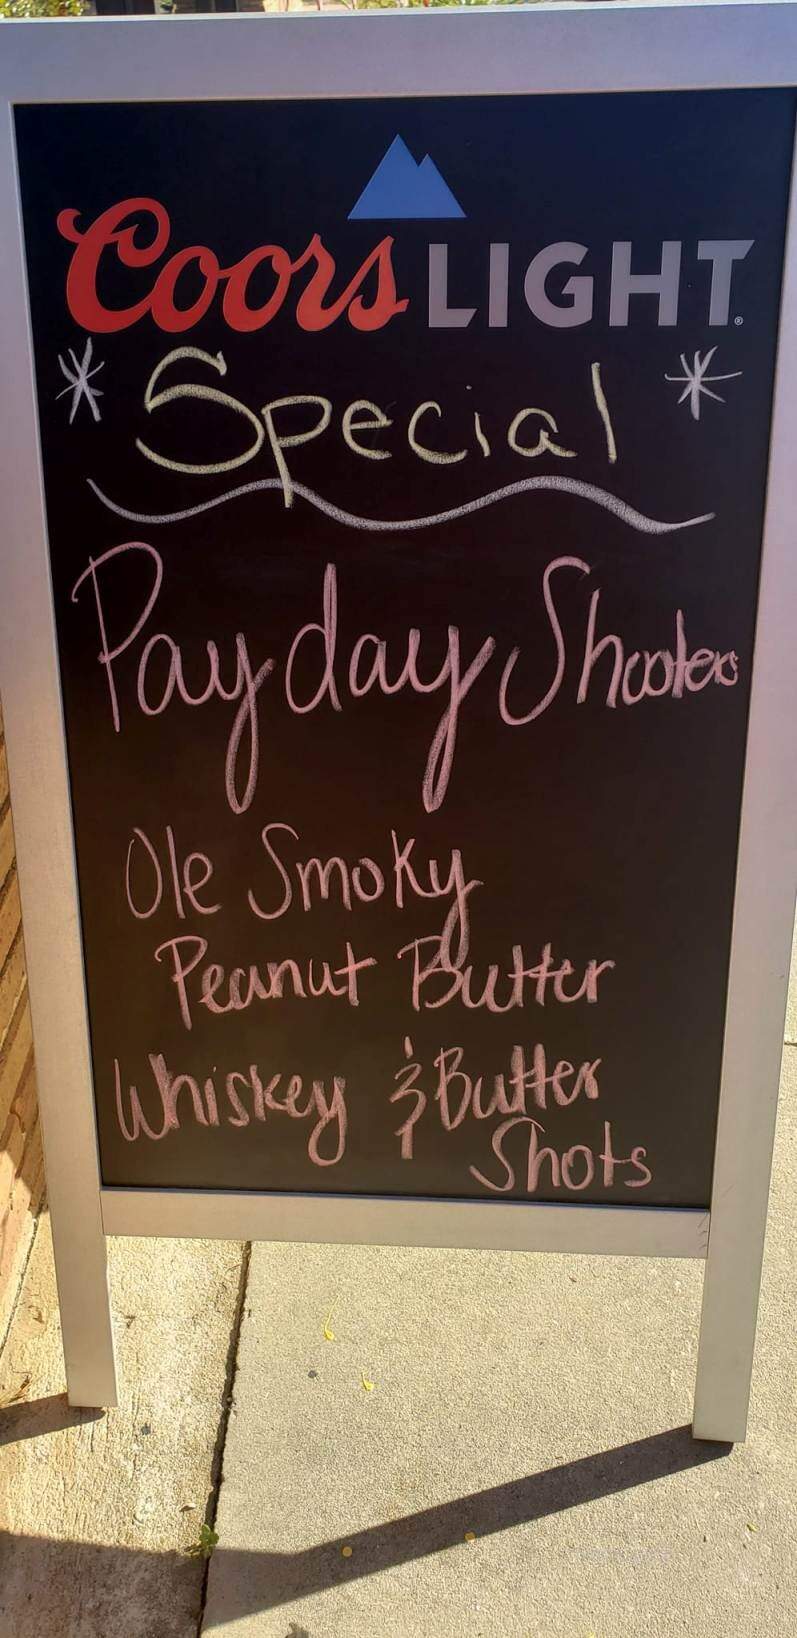 Coors LIGHT®
* Special *
Payday Shooters
Ole Smoky
Peanut Butter
Whiskey & Butter
Shots